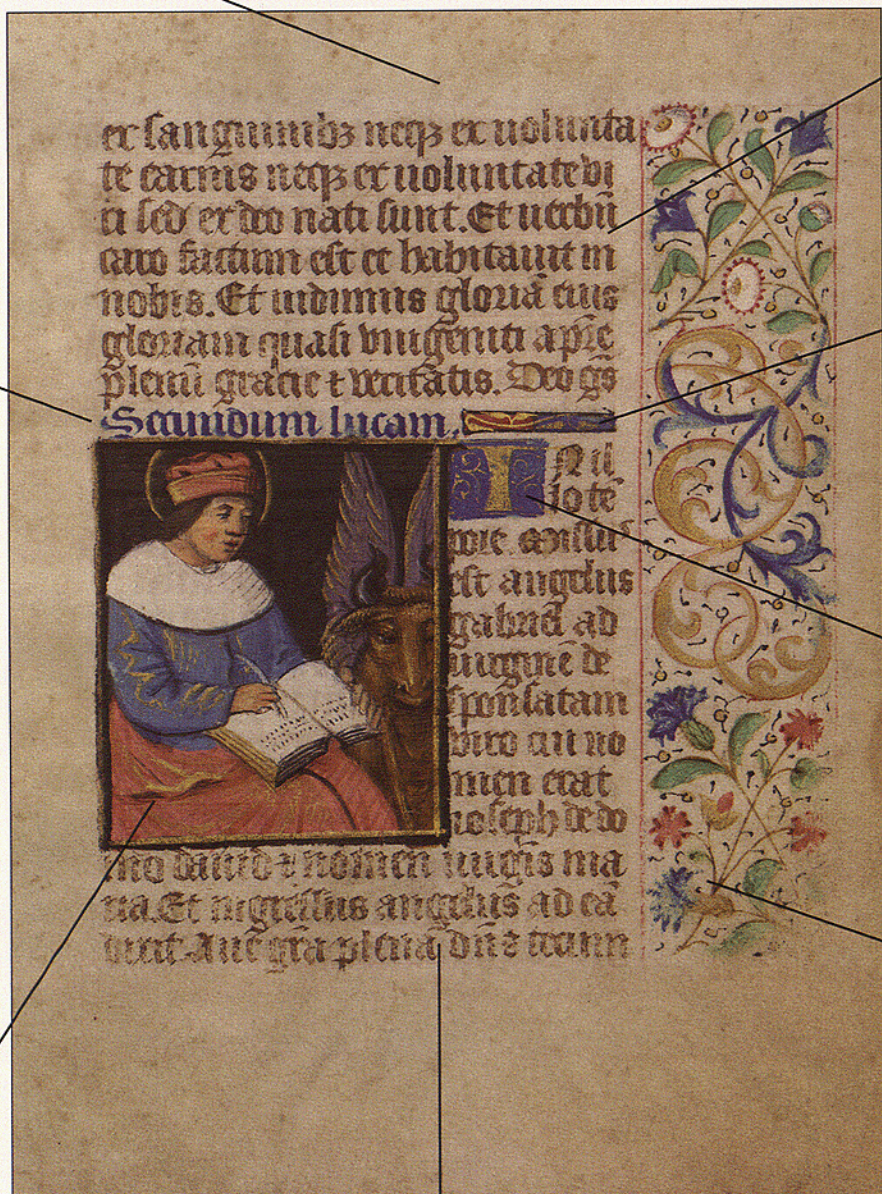 ex sanguinibꝫ neqꝫ ex uolunta
te carnis neqꝫ ex uoluntate vi
ri sed ex deo nati sunt. Et uerbū
caro factum est et habitauit in
nobis. Et uidimus gloriā eius
gloriam quasi vnigeniti a pr̄e
plenū gracie ⁊ veritatis. Deo gs̄
Secundum lucam.
IN il
lo tē
pore. Missus
est angelus
gabriel ad
uirginē de
sponsatam
viro cui no
men erat
ioseph de do
mo dauid ⁊ nomen uirgīs ma
ria. Et ingressus angelus ad eā
dixit. Aue gr̄a plena dn̄s tecum